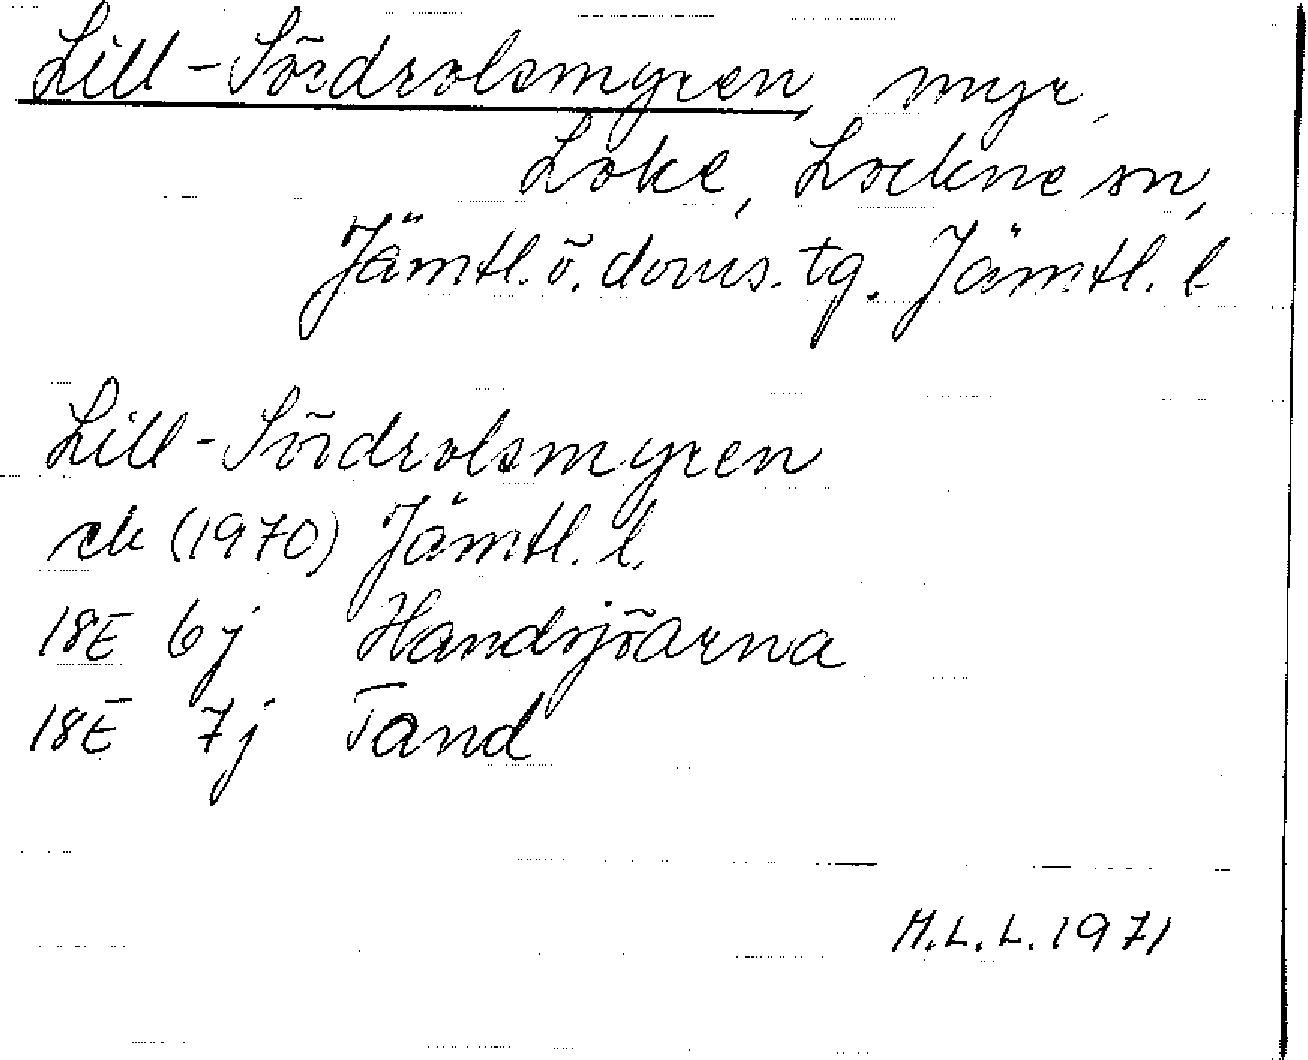 Lill-Sördrolsmyren myr,
Loke, Lockne sn,
Jämtl. ö. doms. tg. Jämtl. l
Lill-Sördrolsmyren
ek (1970) Jämtl. l.
18E 6j Handsjöarna
18E 7j Tand
M.L.L. 1971